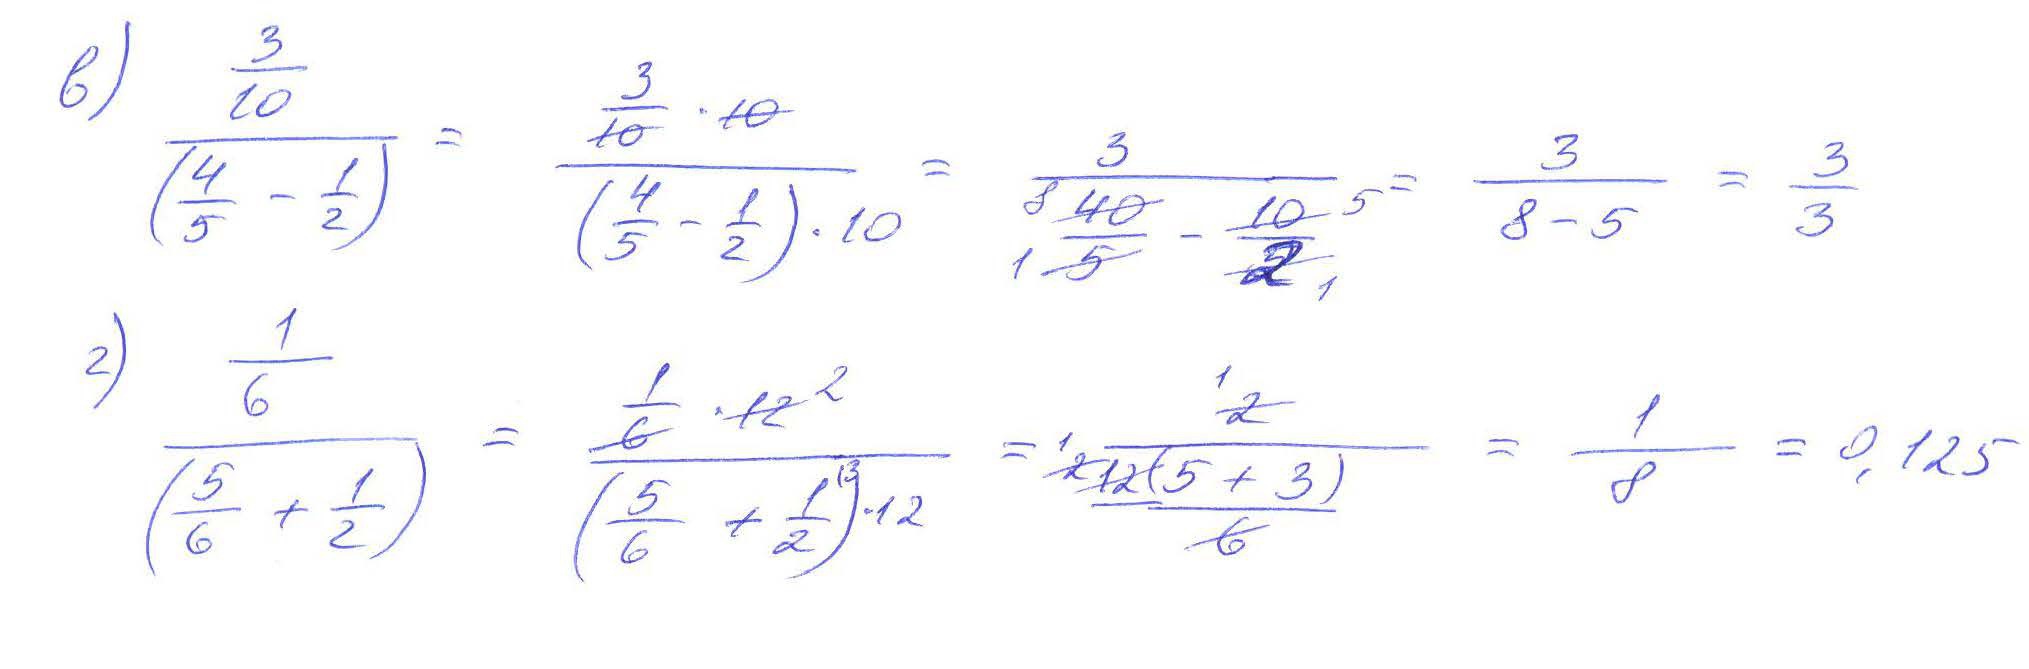 в) (3/10)/(4/5 - 1/2) = (3/10 · 10)/((4/5 - 1/2) · 10) = 3/(8 40/5 1 - 10/2 5 1) = 3/(8 - 5) = 3/3
г) (1/6)/(5/6 + 1/2) = (1/6 · 12 2)/((5/6 + 1/2 (3) · 12) = 1 2/(1 2 12(5 + 3)/6) = 1/8 = 0,125